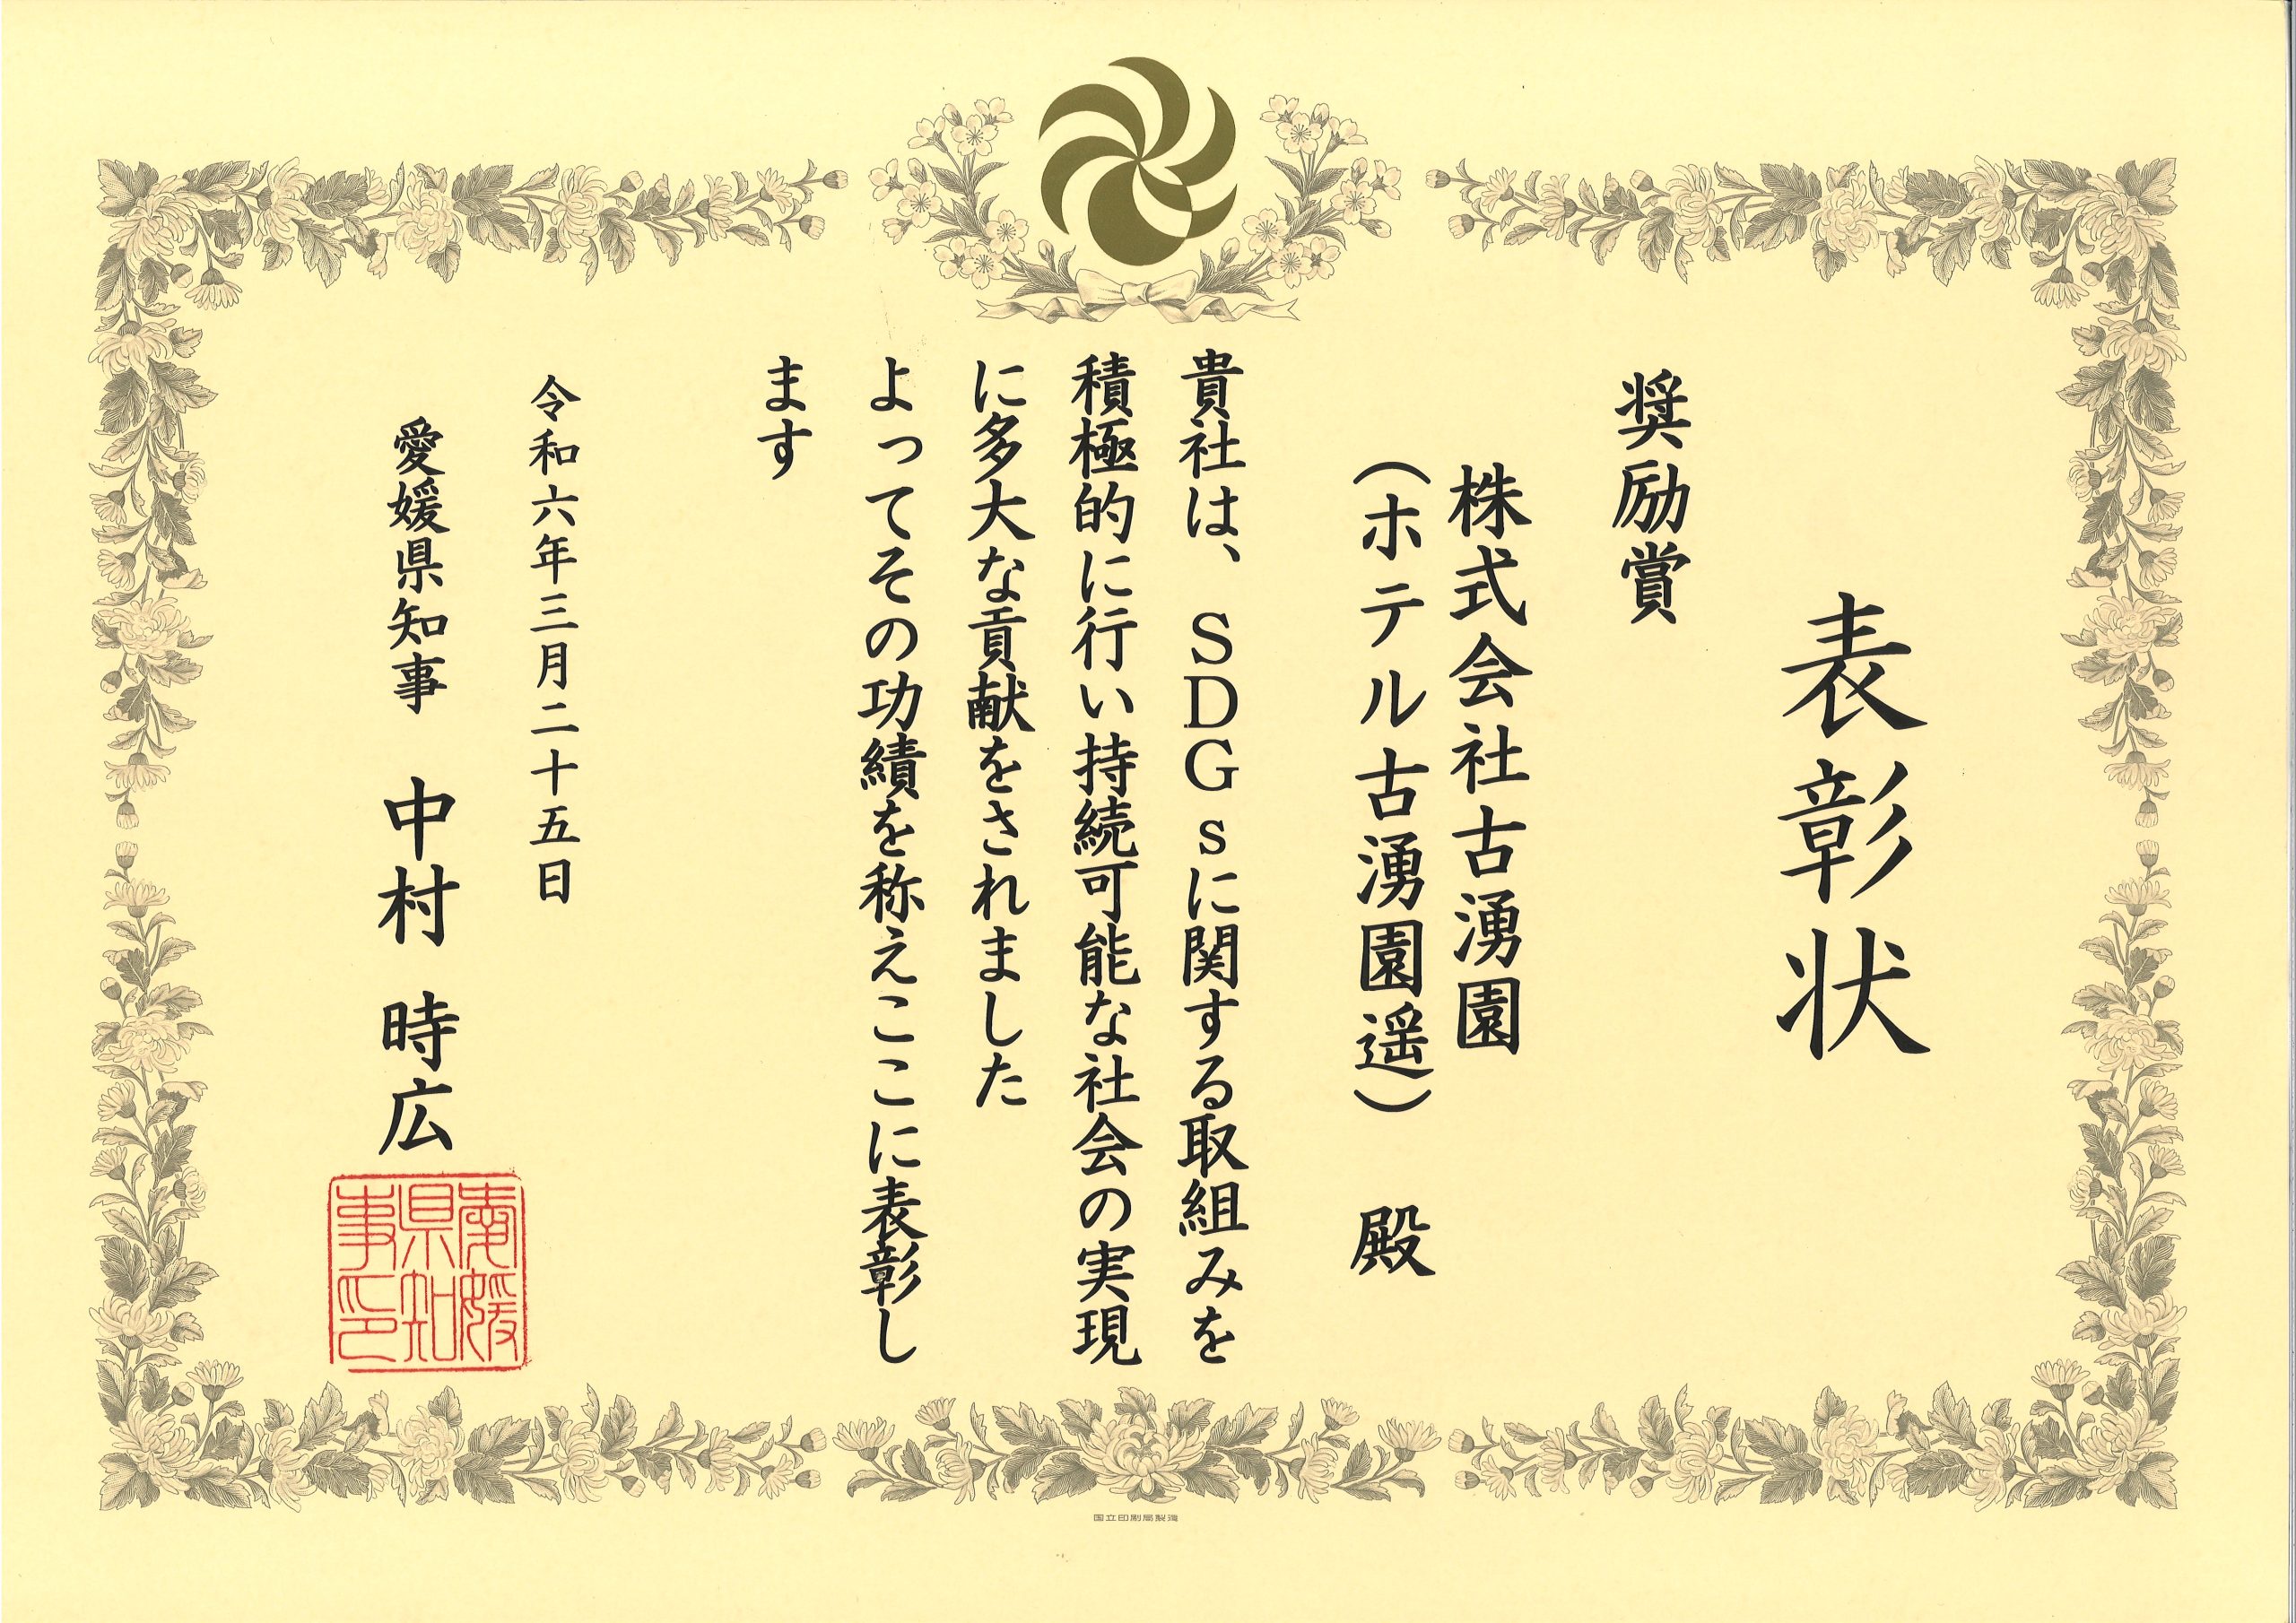 表彰状
奨励賞
株式会社古湧園
（ホテル古湧園遥）　殿
貴社は、ＳＤＧｓに関する取組みを
積極的に行い持続可能な社会の実現
に多大な貢献をされました
よってその功績を称えここに表彰し
ます
令和六年三月二十五日
愛媛県知事　中村　時広
愛媛
県知
事印
国立印刷局製造